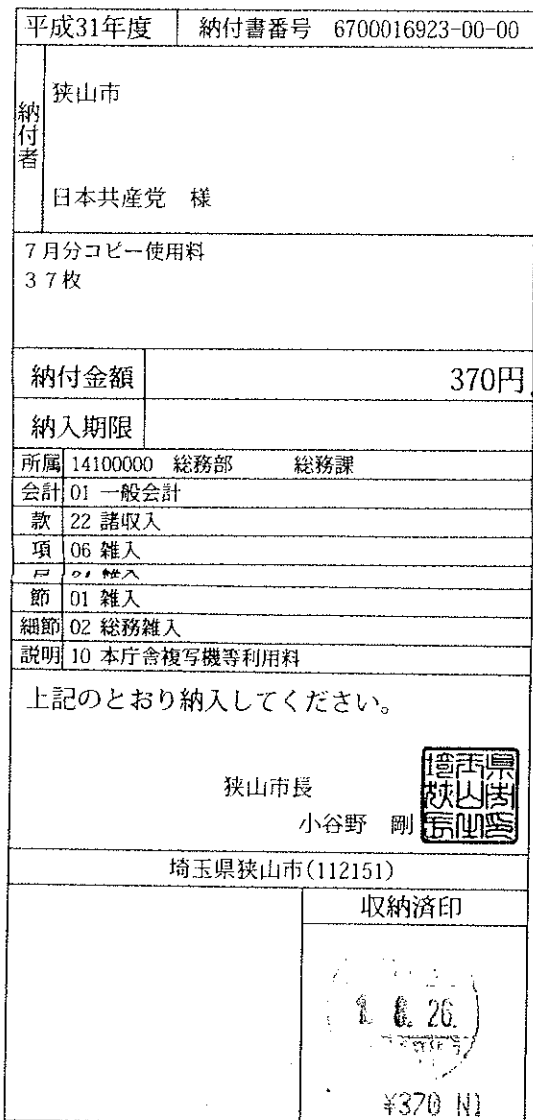 平成31年度 納付書番号 6700016923-00-00
納付者
狭山市
日本共産党 様
7月分コピー使用料
37枚
納付金額 370円
納入期限
所属 14100000 総務部 総務課
会計 01 一般会計
款 22 諸収入
項 06 雑入
節 01 雑入
細節 02 総務雑入
説明 10 本庁舎複写機等利用料
上記のとおり納入してください。
狭山市長
小谷野 剛
埼玉県狭山市(112151)
収納済印
1. 8. 26.
¥370 N1